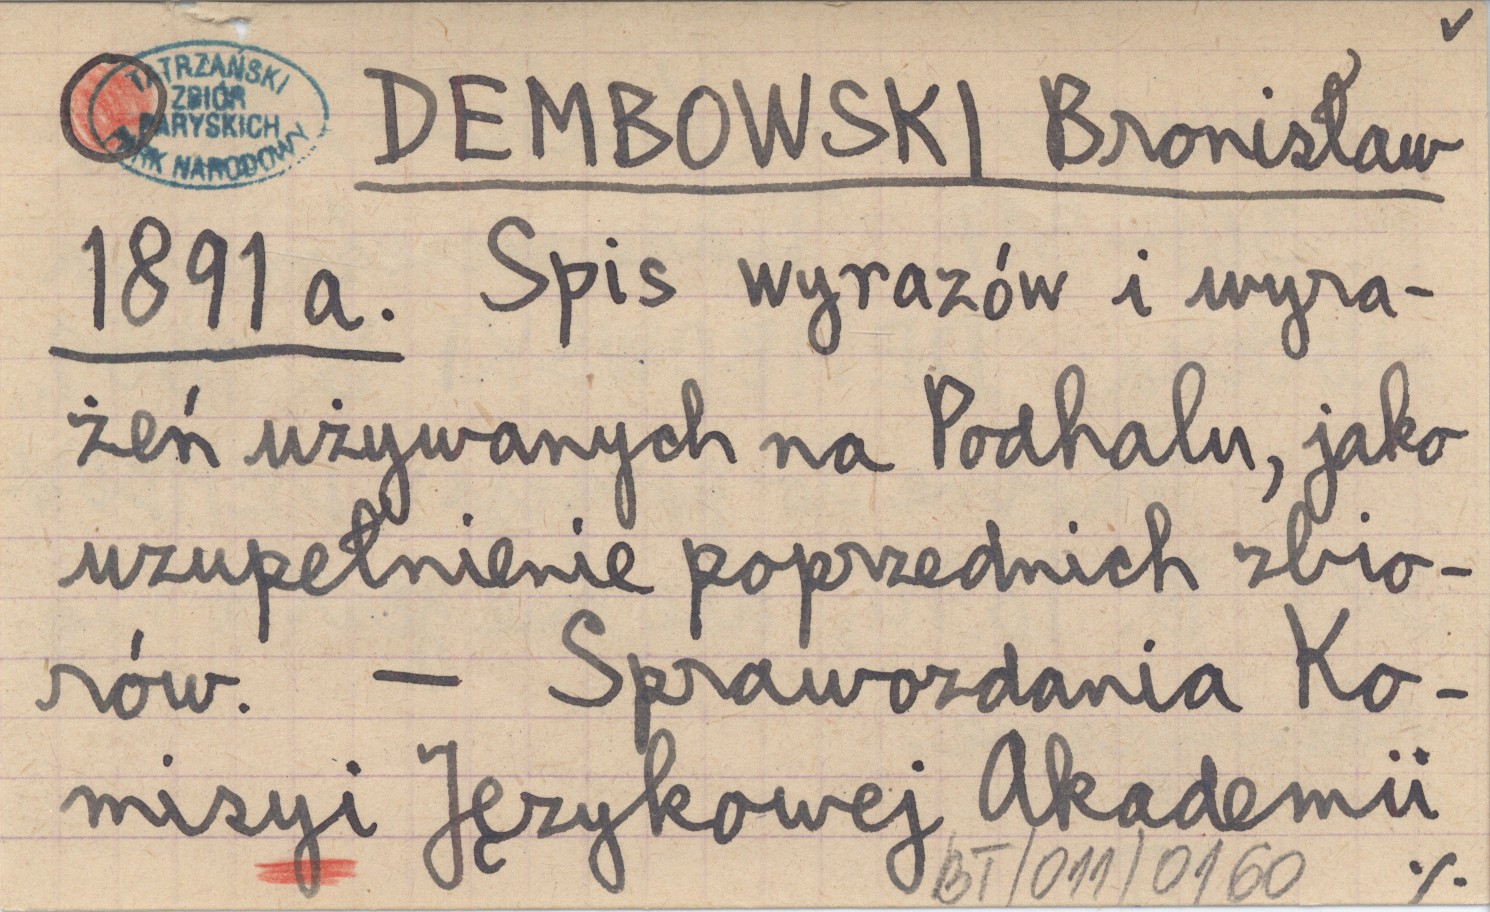 ✓
TATRZAŃSKI
ZBIÓR
PARYSKICH
PARK NARODOWY
DEMBOWSKI Bronisław
1891 a. Spis wyrazów i wyra-
żeń używanych na Podhalu, jako
uzupełnienie poprzednich zbio-
rów. — Sprawozdania Ko-
misyi Językowej Akademii
BT/011/0160 ·/.